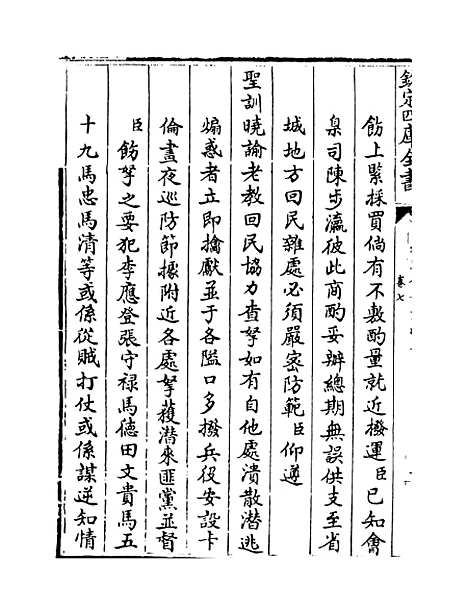 欽定四庫全書
卷七
飭上緊採買倘有不敷酌量就近撥運臣已知會
臬司陳步瀛彼此商酌妥辦總期無誤供支至省
城地方回民雜處必須嚴密防範臣仰遵
聖訓曉諭老教回民協力查拏如有自他處潰散潛逃
煽惑者立即擒獻並于各隘口多撥兵役安設卡
倫晝夜巡防節據附近各處拏獲潛來匪黨並督
臣飭拏之要犯李應登張守禄馬徳田文貴馬五
十九馬忠馬清等或係從賊打仗或係謀逆知情